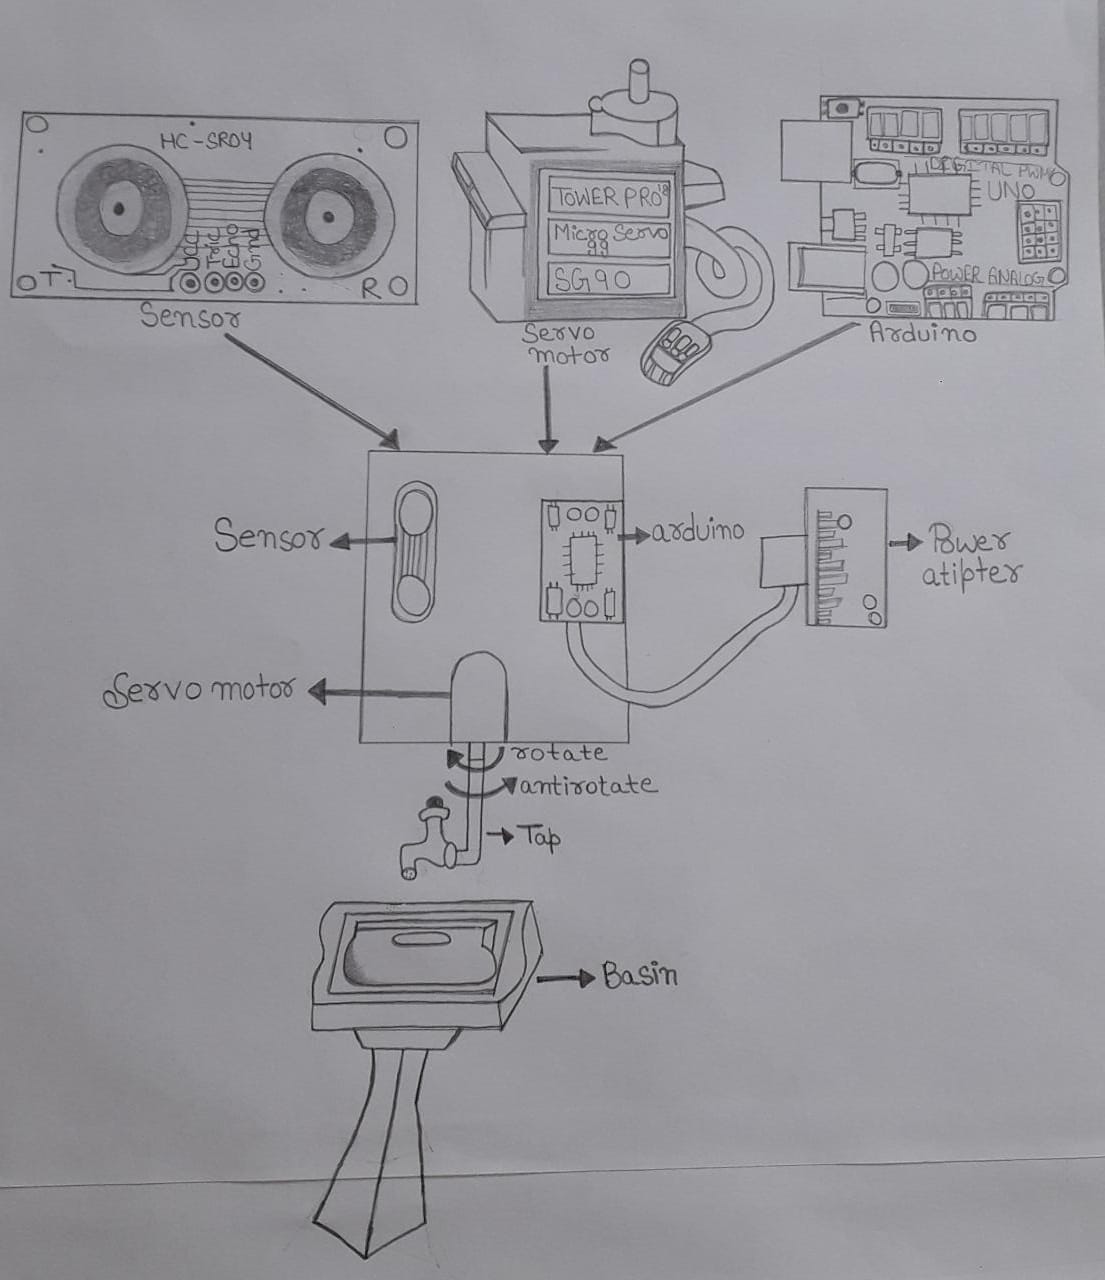 HC-SR04
Vcc
Tric
Echo
Gnd
T
R
Sensor
TOWER PRO
Micro Servo
9g
SG90
Servo
motor
DIGITAL PWM
UNO
POWER ANALOG
Arduino
Sensor
arduino
Power
atipter
Servo motor
rotate
antirotate
Tap
Basin